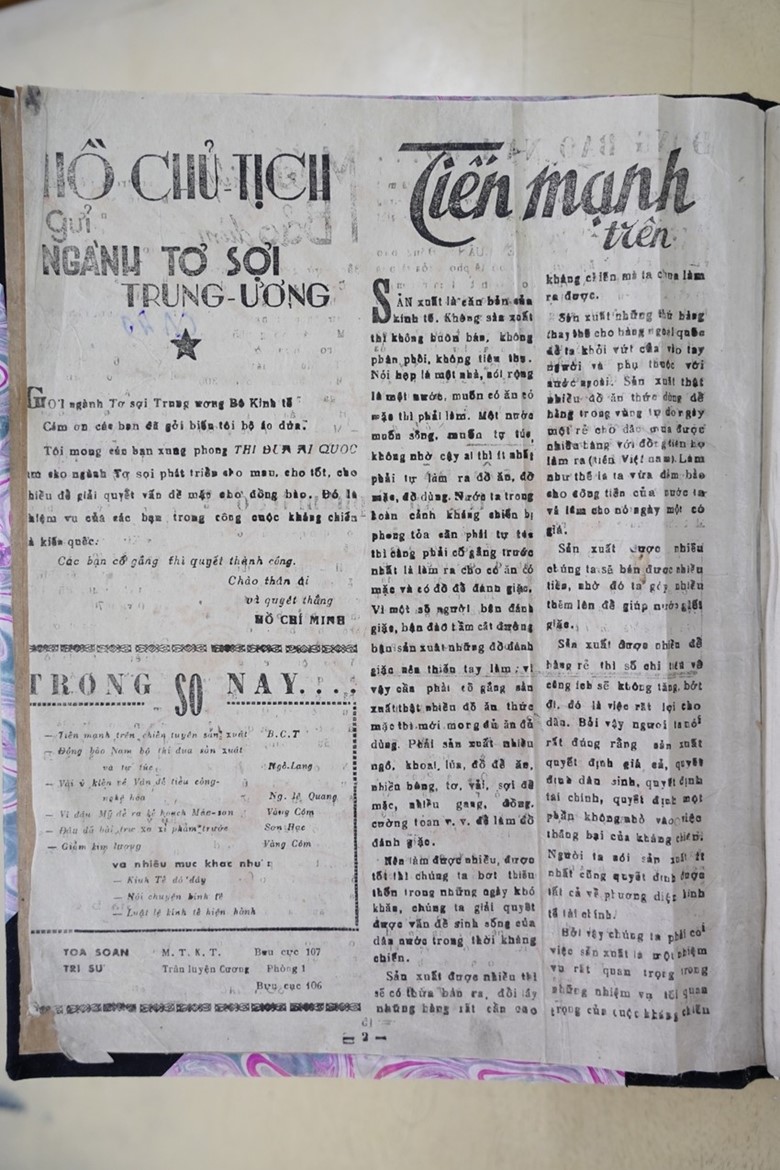 HỒ CHỦ-TỊCH
gửi
NGÀNH TƠ SỢI
TRUNG-ƯƠNG
GỞI ngành Tơ sợi Trung ương Bộ Kinh tế
Cám ơn các bạn đã gởi biếu tôi bộ áo dứa.
Tôi mong các bạn xung phong THI ĐUA ÁI QUỐC
cho ngành Tơ sợi phát triển cho mau, cho tốt, cho
để giải quyết vấn đề mặc cho đồng bào. Đó là
vụ của các bạn trong công cuộc kháng chiến
kiến quốc.
Các bạn cố gắng thì quyết thành công.
Chào thân ái
và quyết thắng
HỒ CHÍ MINH
TRONG SỐ NÀY....
— Tiến mạnh trên chiến tuyến sản xuất B.C.T
— Đồng bào Nam bộ thi đua sản xuất
và tự túc Ngô-Lang
— Vài ý kiến về Vấn đề tiểu công-
nghệ hóa Ng. lệ Quang
— Vì đâu Mỹ đề ra kế hoạch Mác-san Vâng Cóm
— Đâu đó bài trừ xa xỉ phẩm trước Sơn Học
— Giảm kim lượng Vâng Cóm
và nhiều mục khác như :
— Kinh Tế đó đây
— Nói chuyện kinh tế
— Luật lệ kinh tế hiện hành
TÒA SOẠN M. T. K. T. Bưu cục 107
TRỊ SỰ Trần luyện Cương Phòng 1
Bưu cục 106
Tiến mạnh
trên
SẢN xuất là căn bản của
kinh tế. Không sản xuất
thì không buôn bán, không
phân phối, không tiêu thụ.
Nói hẹp là một nhà, nói rộng
là một nước, muốn có ăn có
mặc thì phải làm. Một nước
muốn sống, muốn tự túc,
không nhờ cậy ai thì ít nhất
phải tự làm ra đồ ăn, đồ
mặc, đồ dùng. Nước ta trong
hoàn cảnh kháng chiến bị
phong tỏa cần phải tự túc
thì càng phải cố gắng trước
nhất là làm ra cho có ăn có
mặc và có đồ để đánh giặc.
Vì một số người bận đánh
giặc, bận đào hầm cắt đường
bận sản xuất những đồ đánh
giặc nên thiếu tay làm ; vì
vậy cần phải cố gắng sản
xuất thật nhiều đồ ăn thức
mặc thì mới mong đủ ăn đủ
dùng. Phải sản xuất nhiều
ngô, khoai, lúa, đồ để ăn,
nhiều bông, tơ, vải, sợi để
mặc, nhiều gang, đồng,
cường toan v. v. để làm đồ
đánh giặc.
Nên làm được nhiều, được
tốt thì chúng ta bớt thiếu
thốn trong những ngày khó
khăn, chúng ta giải quyết
được vấn đề sinh sống của
dân nước trong thời kháng
chiến.
Sản xuất được nhiều thì
sẽ có thừa bán ra, đổi lấy
những hàng rất cần cho
kháng chiến mà ta chưa làm
ra được.
Sản xuất những thứ hàng
thay thế cho hàng ngoại quốc
để ta khỏi vứt của vào tay
người và phụ thuộc với
nước ngoài. Sản xuất thật
nhiều đồ ăn thức dùng để
hàng trong vùng tự do ngày
một rẻ cho dân mua được
nhiều hàng với đồng tiền họ
làm ra (tiền Việt nam). Làm
như thế là ta vừa đảm bảo
cho đồng tiền của nước ta
và làm cho nó ngày một có
giá.
Sản xuất được nhiều
chúng ta sẽ bán được nhiều
tiền, nhờ đó ta góp nhiều
thêm lên để giúp nước giết
giặc.
Sản xuất được nhiều để
hàng rẻ thì số chi tiêu về
công ích sẽ không tăng, bớt
đi, đó là việc rất lợi cho
dân. Bởi vậy người ta nói
rất đúng rằng sản xuất
quyết định giá cả, quyết
định dân sinh, quyết định
tài chính, quyết định một
phần không nhỏ vào việc
thắng bại của kháng chiến.
Người ta nói sản xuất ít
nhất cũng quyết định được
tất cả về phương diện kinh
tế tài chính.
Bởi vậy chúng ta phải coi
việc sản xuất là một nhiệm
vụ rất quan trọng trong
những nhiệm vụ tối quan
trọng của cuộc kháng chiến
— 2 —